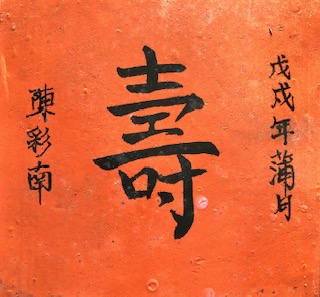 戊戍年蒲月
壽
陳彩南